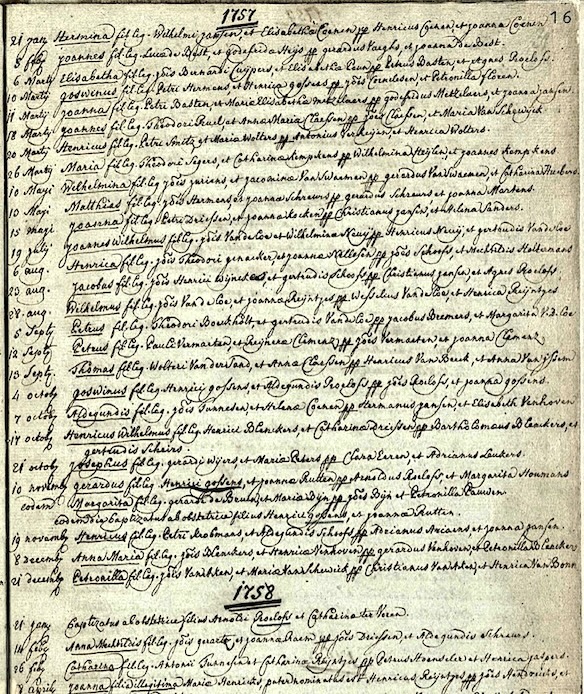 1757
16
21 jan Hermina fil. leg. Wilhelmi jansen, et Elisabetha Coenen pp Henricus Coenen, et joanna Coenen
5 feby joannes fil. leg. Luca de Best, et godefrida Heijs pp gerardus et joanna de Best.
6 Marty Elisabetha fil. leg. jois Bernardi Cuijpers, et Elisabetha pp Petrus Basten, et Agnes Roelofs.
10 Marty goswinus fil. leg. Petri Hermens et Henrica gossens pp jois Cornelissen, et Petronilla
11 Marty joanna fil. leg. Petri Basten, et Maria Elisabetha Metzelaers pp godefridus Metzelaers, et joanna jansen.
18 Marty joannes fil. leg. Theodori et Anna Maria Claessen pp jois Claessen, et Maria Van
20 Marty Henricus fil. leg. Petri Smitz, et Maria Wolters pp Antonius et Henrica Wolters.
26 Marty Maria fil. leg. Theodori Segers, et Catharina Kempkens pp Wilhelmina Heijlen, et joannes Kempkens
10 Maji Wilhelmina fil. leg. jois juriens, et jacomina Van Swaemen pp gerardus Van Swaemen, et Catharina
10 Maji Matthias fil. leg. jois Hermens, et joanna Schreurs pp gerardus Schreurs et joanna Martens.
15 maji joanna fil. leg. Petri Driessen, et joanna pp Christianus jansen, et Helena Sanders.
19 july joannes Wilhelmus fil. leg. jois Van de Loe et Wilhelmina pp Henricus et gertrudis Van de Loe
6 aug. Henrica fil. leg. jois Theodori et joanna pp jois Schoofs, et Mechtildis Holtemans
23 aug. jacobus fil. leg. jois Henrici et gertrudis Schoofs pp Christianus jansen, et Agnes Roelofs
28. aug. Wilhelmus fil. leg. jois Van de Loe, et joanna Reijntjes pp Wessellus Van de Loe, et Henrica Reijntjes
5 Septy Petrus fil. leg. Theodori Boeckholt, et gertrudis Van de Loe pp jacobus Bremers, et Margarita V. D. Loe
12 Septy Petrus fil. leg. Pauli Vermaeten, et Reijnera Clemenz pp jois Vermaeten, et joanna Clemenz
13 Septy. Thomas fil. leg. Wolteri Vander Sand, et Anna Claessen pp Henricus Van Beeck, et Anna Van
4 octoby goswinus fil. leg. Henrici gossens, et Aldegundis Roelofs pp jois Roelofs, et joanna gossens.
7 octoby Aldegundis fil. leg. jois Tunnesen, et Helena Coenen pp Hermanus jansen, et Elisabeth Vanhoven
17 octoby Henricus Wilhelmus fil. leg. Henrici Blenckers, et Catharina Driessen pp Bartholomaus Blenckers, et
gertrudis Scheirs
21 octoby josephus fil. leg. gerardi Wijers, et Maria Peters pp Clara Eeren, et Adrianus Leukers.
10 novemby gerardus fil. leg. Henrici gossens, et joanna Rutten pp Arnoldus Roelofs, et Margarita Houmans
eodem Margarita fil. leg. gerardi de Bruin, et Maria Dijn pp jois Dijn et Petronilla
eodem die baptizatus ab obstetrice filius Henrici gossens, et joanna Rutten.
19 novemby Henricus fil. leg. Petri et Aldegundis Schoofs pp Adrianus Ariaens, et joanna jansen.
8 decemby Anna Maria fil. leg. jois Blenckers, et Henrica Vanhoven pp gerardus Vanhoven, et Petronilla Blenckers
21 decemby Petronilla fil. leg. jois et Maria Van pp Christianus et Henrica Van Bonn
1758
21 jany baptizatus ab obstetrice filius Arnoldi Roelofs et Catharina ter Veren.
14 feby Anna Mechtildis fil. leg. jois gerartz, et joanna pp jois Driessen, et Aldegundis Schreurs.
26 feby Catharina fil. leg. Antonii Tunnesen et Catharina Reijntjes pp Petrus et Henrica jaspers.
7 april joanna filia illegitima Maria Henricks, pater nominatus est Henricus Reijntjes pp jois